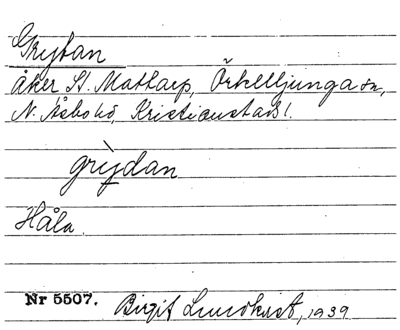 Grytan
Åker, St. Mattarp, Örkelljunga sn,
N. Åsbo hd, Kristianstads l.
grỳdan
Håla.
Nr 5507. Birgit Lundkvist, 1939